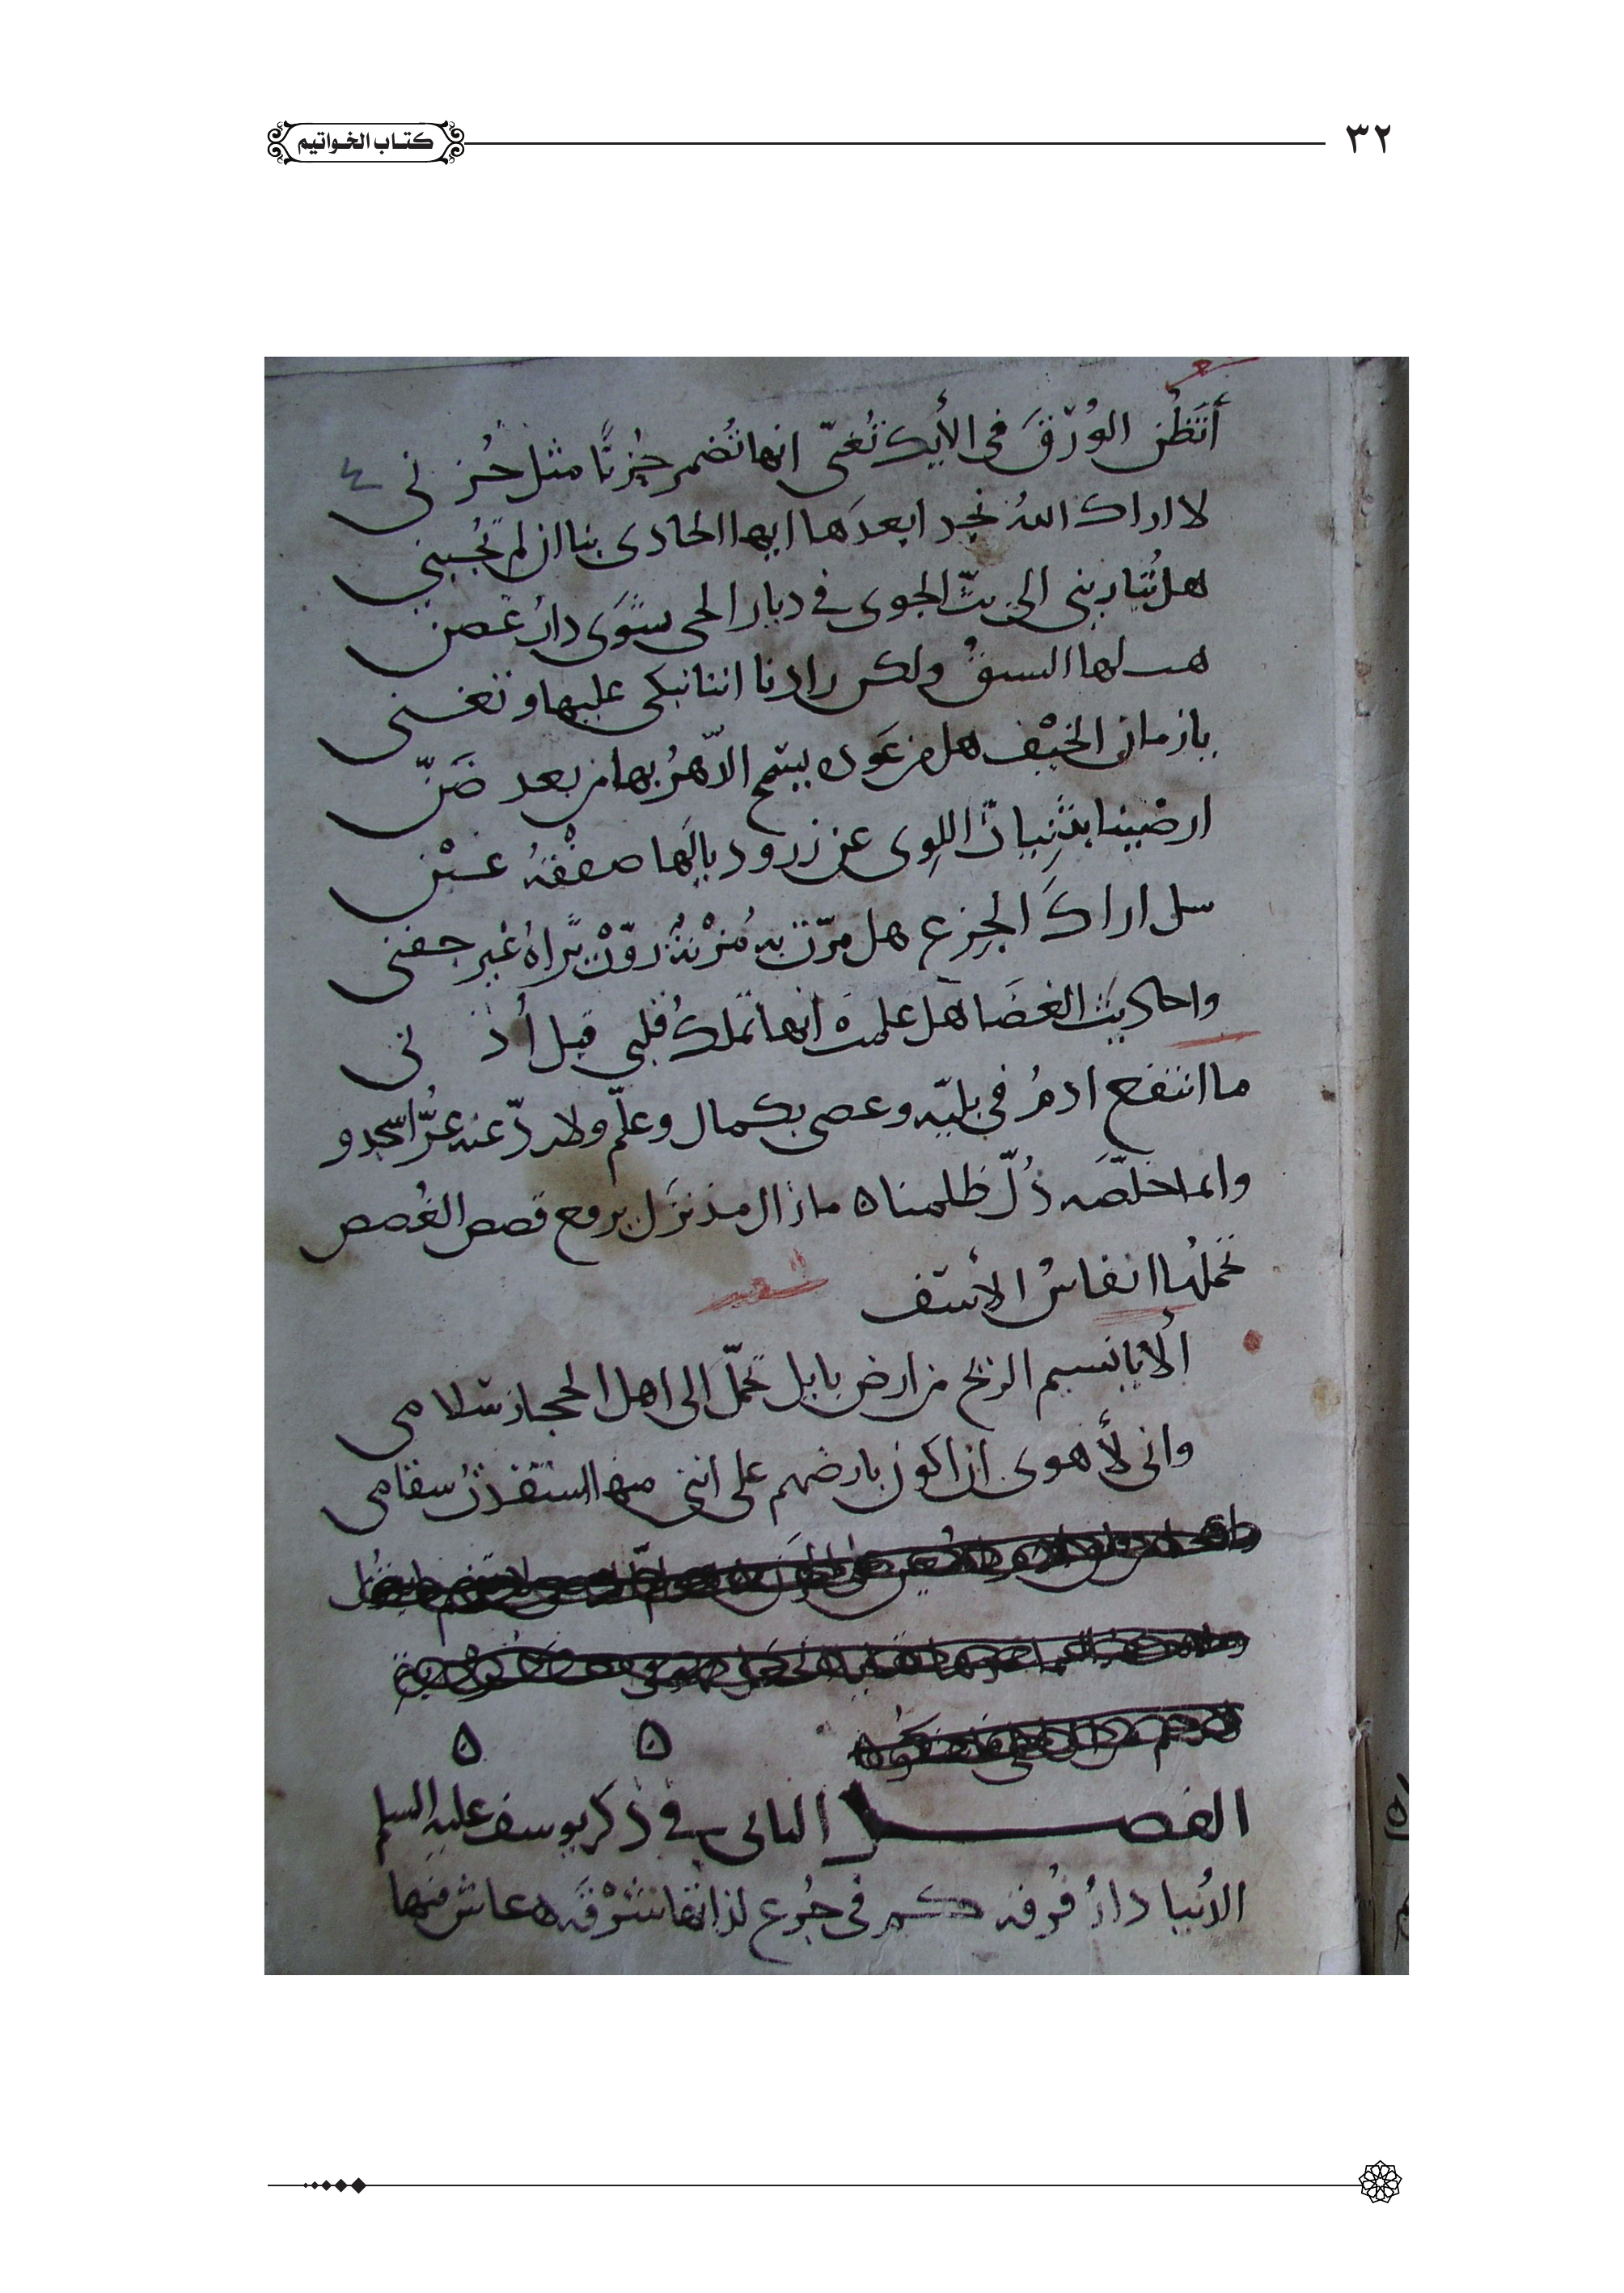 ٣٢
كتاب الخواتيم
شعر
أتَظُن الوُرْقَ في الأيك تُغنّي انها تُضمر حُزنًا مثل حُزني
لا اراك اللهُ نجدا بعدَها ايها الحادى بنا ان لم تُجبني
هل تُبارينى الى بثّ الجوى في ديار الحى سَوَى دارُ غصن
هب لها السبقُ ولكن زادنا اننا نبكى عليها وتغنى
يا زمان الخيْف هل من عَودة يسمح الدّهرُ بها من بعد ضَنّ
ارضينا بثَنِيات اللِوى عن زرود يا لَها صفْقةُ غبْن
سل اراكَ الجِزع هل مرّت به مُزْنةٌ روّتْ ثَراهُ غير جفنى
واحاديثَ الغضَا هل علمت انها تملكُ قلبي قبل أذنى
ما انتفع ادمُ في بليّه وعصى بكمال وعلّم ولا ردّ عنه عزُّ اسجدو
وانما خلّصَه ذُلّ ظلمنا ه ما زال مذ نزَل يرفع قصص الغُصص
تحملها انفاسُ الأسَف
شعر
ألا يا نسيم الريح من ارض بابل تحمّل الى اهل الحجاز سلامى
وانى لأهوى ان اكون بارضهم على اننى منها استفدتُ سقامى
ه ه
الفصل الثاني في ذكر يوسف عليه السلم
الدُنيا دارُ فُرقه كم في جُرع لذاتها شَرْقَه ه عاش فيها